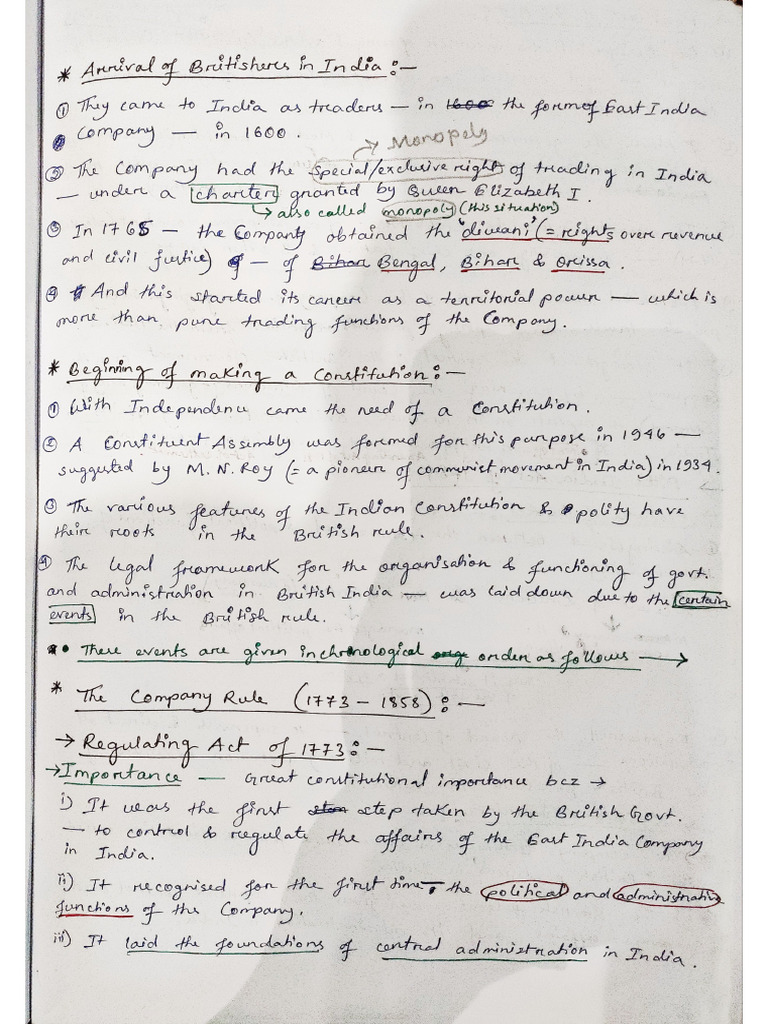 * Arrival of Britishers in India :—
① They came to India as traders — in 1600 the form of East India
Company — in 1600.
→ Monopoly
② The Company had the special/exclusive right of trading in India
— under a charter granted by Queen Elizabeth I.
↳ also called monopoly (this situation)
③ In 1765 — the Company obtained the 'diwani' (= rights over revenue
and civil justice) — of Bihar Bengal, Bihar & Orissa.
④ And this started its career as a territorial power — which is
more than pure trading functions of the Company.
* Beginning of making a Constitution :—
① With Independence came the need of a Constitution.
② A Constituent Assembly was formed for this purpose in 1946 —
suggested by M. N. Roy (= a pioneer of communist movement in India) in 1934.
③ The various features of the Indian Constitution & polity have
their roots in the British rule.
④ The legal framework for the organisation & functioning of govt.
and administration in British India — was laid down due to the certain
events in the British rule.
• These events are given in chronological order as follows →
* The Company Rule (1773 – 1858) :—
→ Regulating Act of 1773 :—
→ Importance — Great constitutional importance bcz →
i) It was the first step taken by the British Govt.
— to control & regulate the affairs of the East India Company
in India.
ii) It recognised for the first time, the political and administrative
functions of the Company.
iii) It laid the foundations of central administration in India.